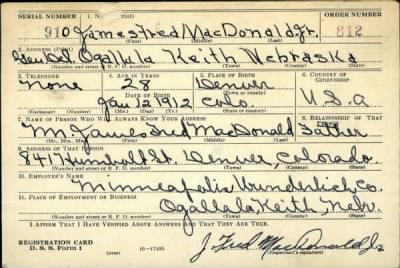 SERIAL NUMBER 1. NAME ORDER NUMBER
910 James Fred MacDonald, Jr. 812
(First) (Middle) (Last)
2. ADDRESS
Gen. Del. Ogallala Keith Nebraska
(Number and street or R. F. D. number) (Town) (County) (State)
3. TELEPHONE 4. AGE IN YEARS 5. PLACE OF BIRTH 6. COUNTRY OF CITIZENSHIP
None 28 Denver
DATE OF BIRTH (Town or county)
Jan 12 1912 Colo. U.S.A
(Exchange) (Number) (Mo.) (Day) (Yr.) (State or country)
7. NAME OF PERSON WHO WILL ALWAYS KNOW YOUR ADDRESS 8. RELATIONSHIP OF THAT PERSON
Mr. James Fred MacDonald Father
(Mr., Mrs., Miss) (First) (Middle) (Last)
9. ADDRESS OF THAT PERSON
841 Humbolt St. Denver, Colorado.
(Number and street or R. F. D. number) (Town) (County) (State)
10. EMPLOYER'S NAME
Minneapolis Wunderlich Co.
11. PLACE OF EMPLOYMENT OR BUSINESS
Ogallala Keith, Neb.
(Number and street or R. F. D. number) (Town) (County) (State)
I AFFIRM THAT I HAVE VERIFIED ABOVE ANSWERS AND THAT THEY ARE TRUE.
REGISTRATION CARD
D. S. S. Form 1 16—17105 J. Fred MacDonald Jr.
(Registrant's signature)